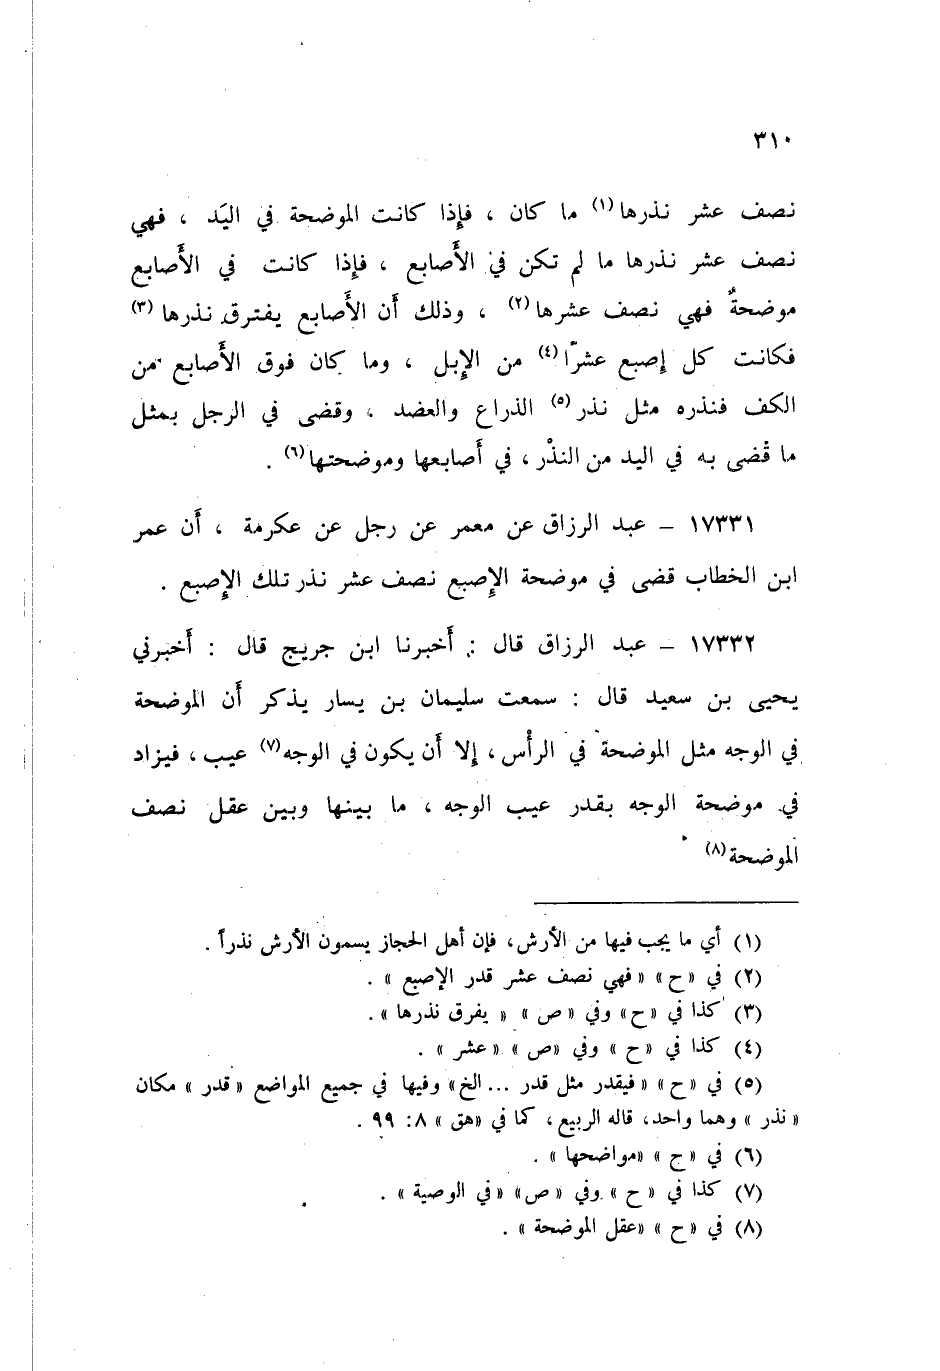 ٣١٠
نصف عشر نذرها(١) ما كان ، فإِذا كانت الموضحة في اليَد ، فهي
نصف عشر نذرها ما لم تكن في الأَصابع ، فإِذا كانت في الأَصابع
موضحةٌ فهي نصف عشرها(٢) ، وذلك أَن الأَصابع يفترق نذرها(٣)
فكانت كل إِصبع عشرًا(٤) من الإِبل ، وما كان فوق الأَصابع من
الكف فنذره مثل نذر(٥) الذراع والعضد ، وقضى في الرجل بمثل
ما قُضى به في اليد من النذْر ، في أَصابعها وموضحتها(٦) .
١٧٣٣١ – عبد الرزاق عن معمر عن رجل عن عكرمة ، أَن عمر
ابن الخطاب قضى في موضحة الإِصبع نصف عشر نذر تلك الإِصبع .
١٧٣٣٢ – عبد الرزاق قال : أَخبرنا ابن جريج قال : أَخبرني
يحيى بن سعيد قال : سمعت سليمان بن يسار يذكر أَن الموضحة
في الوجه مثل الموضحة في الرأْس ، إِلا أَن يكون في الوجه(٧) عيب ، فيزاد
في موضحة الوجه بقدر عيب الوجه ، ما بينها وبين عقل نصف
الموضحة(٨) .
(١) أي ما يجب فيها من الأرش، فإن أهل الحجاز يسمون الأرش نذراً .
(٢) في «ح» «فهي نصف عشر قدر الإصبع » .
(٣) كذا في «ح» وفي «ص» « يفرق نذرها» .
(٤) كذا في «ح» وفي «ص» «عشر» .
(٥) في «ح» «فيقدر مثل قدر ... الخ» وفيها في جميع المواضع «قدر» مكان
«نذر» وهما واحد، قاله الربيع، كما في «هق» ٨: ٩٩ .
(٦) في «ح» «مواضحها» .
(٧) كذا في «ح» وفي «ص» «في الوصية» .
(٨) في «ح» «عقل الموضحة» .